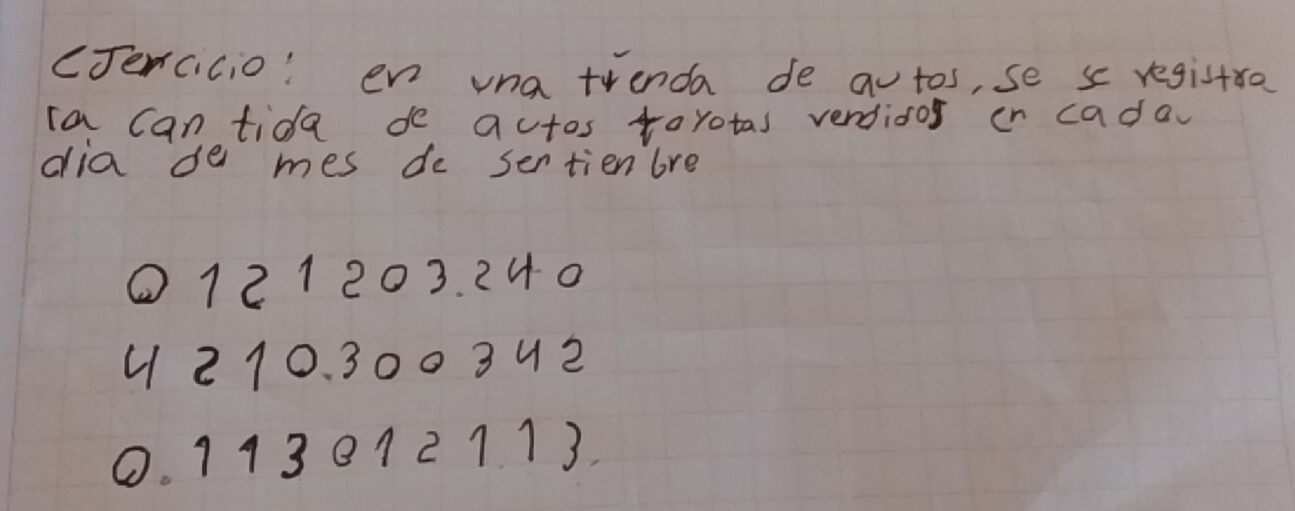 EJercicio: en una tienda de autos, se se registra
la can tida de autos toyotas vendidos en cada
dia del mes de sertienbre
0 1 2 1 2 0 3.2 4 0
4 2 1 0.3 0 0 3 4 2
0.1 1 3 0 1 2 1 1 3.